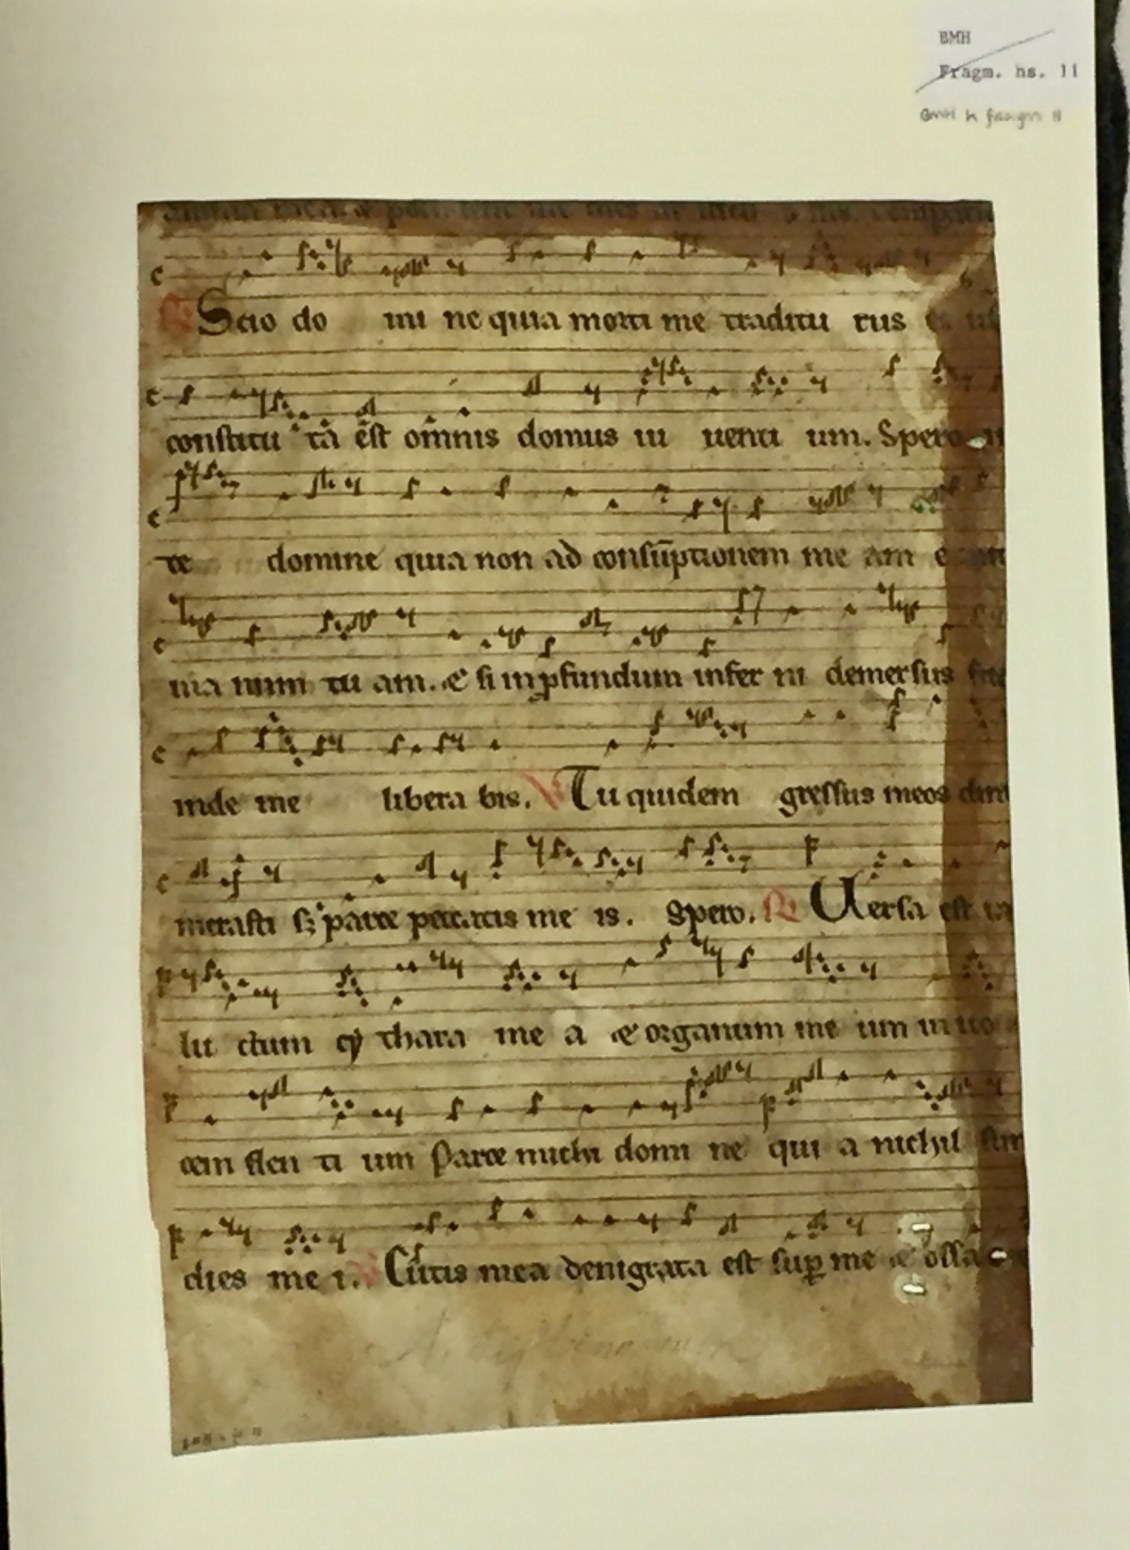 BMH
Fragm. hs. 11
BMH h fragm 11
℟ Scio do mi ne quia morti me traditu rus
constitu ta est om̄nis domus ui uenti um. Spero
te domine quia non ad consūptionem me am
ma num tu am. & si in ꝓfundum infer ni demersus
inde me libera bis. ℣ Tu quidem gressus meos
merasti sꝫ parce peccatis me is. Spero. ℟ Uersa est
lu ctum cy thara me a & organum me um in uo
cem flen ti um Parce michi domi ne qui a nichil
dies me i. ℣ Cutis mea denigrata est suꝑ me & ossa